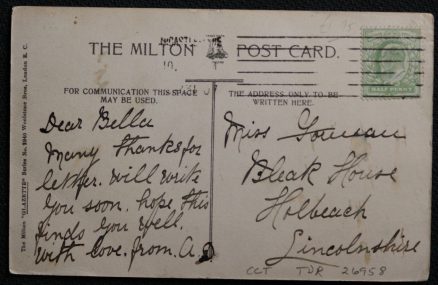 THE MILTON POST CARD.
FOR COMMUNICATION THIS SPACE
MAY BE USED.
THE ADDRESS ONLY TO BE
WRITTEN HERE.
HALF PENNY
Dear Bella
Many thanks for
letter. will write
you soon. hope this
finds you well.
with love. from. A.
Miss
Bleak House
Holbeach
Lincolnshire
CCT TDR 26958
The Milton "GLAZETTE" Series No. Woolstone Bros. London E.C.